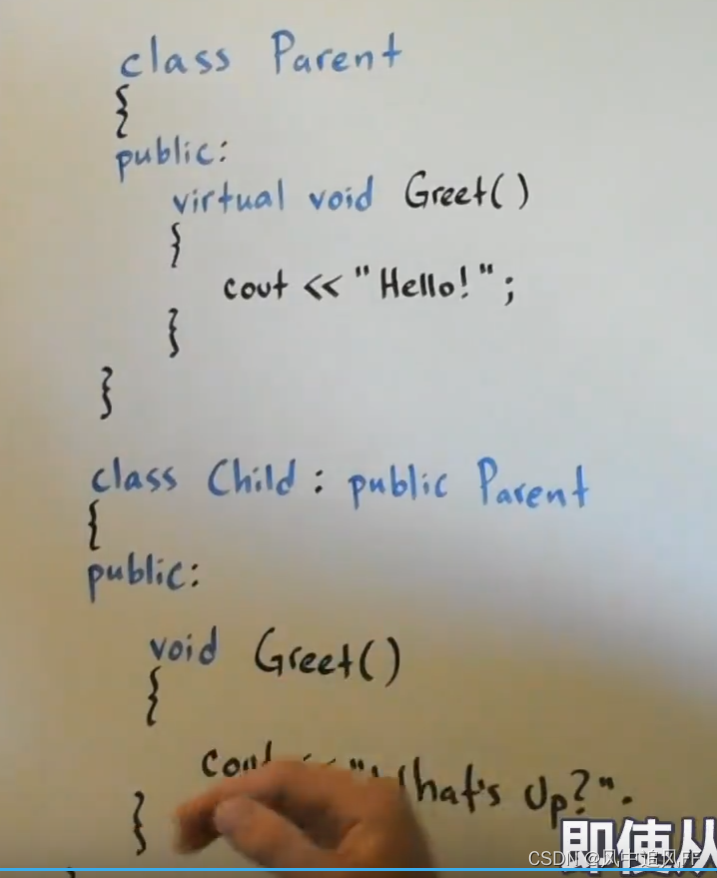 class Parent
{
public:
virtual void Greet()
{
cout << "Hello!";
}
}
class Child : public Parent
{
public:
void Greet()
{
cout << "What's Up?".
}
即使从
CSDN @风中追风